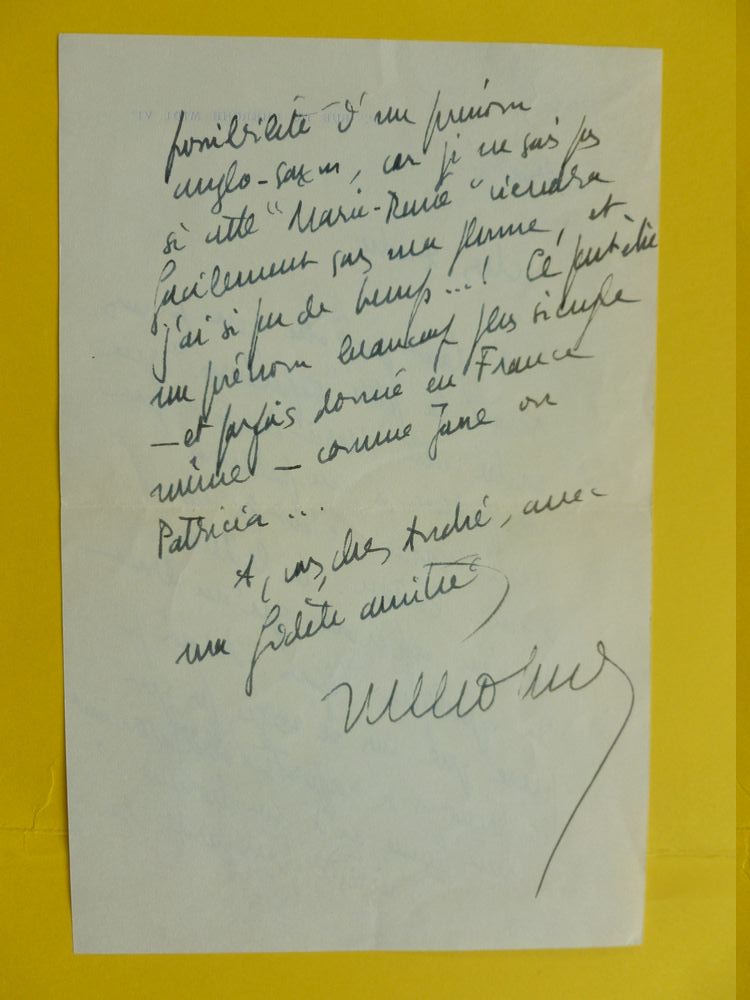 possibilité d'un prénom
anglo-saxon, car je ne sais pas
si cette "Marie-Renée" viendra
facilement sous ma plume, et
j'ai si peu de temps...! Ce peut être
un prénom beaucoup plus simple
— et parfois donné en France
même — comme Jane ou
Patricia ...
A vous, cher André, avec
ma fidèle amitié